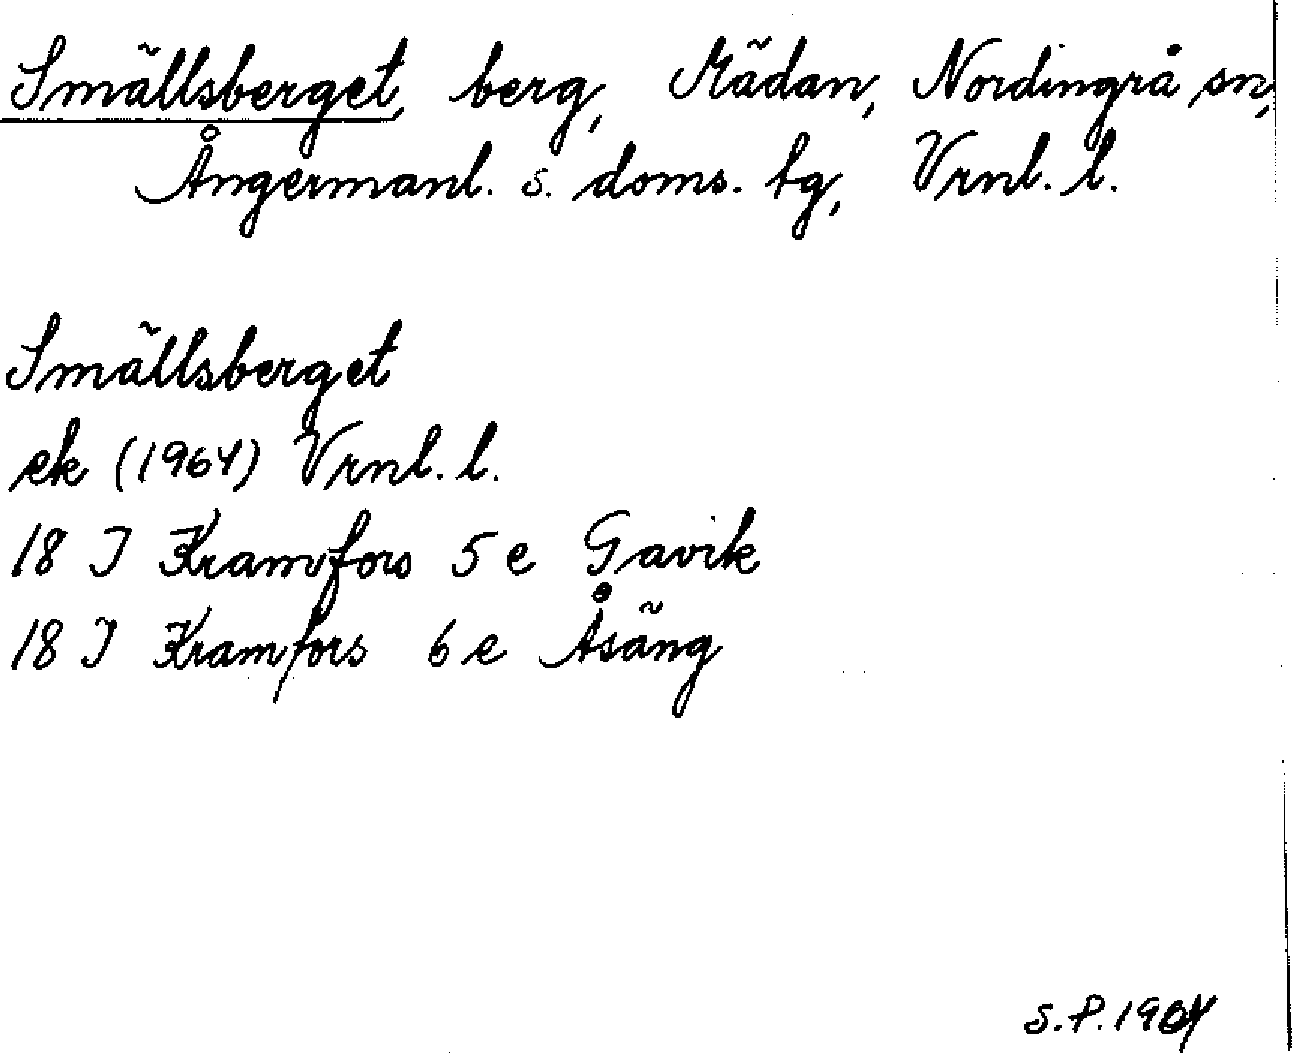 Smällsberget, berg, Mädan, Nordingrå sn,
Ångermanl. s. doms. tg, Vrnl. l.
Smällsberget
ek (1964) Vrnl. l.
18 I Kramfors 5 e Gavik
18 I Kramfors 6 e Åsäng
S.P. 1964